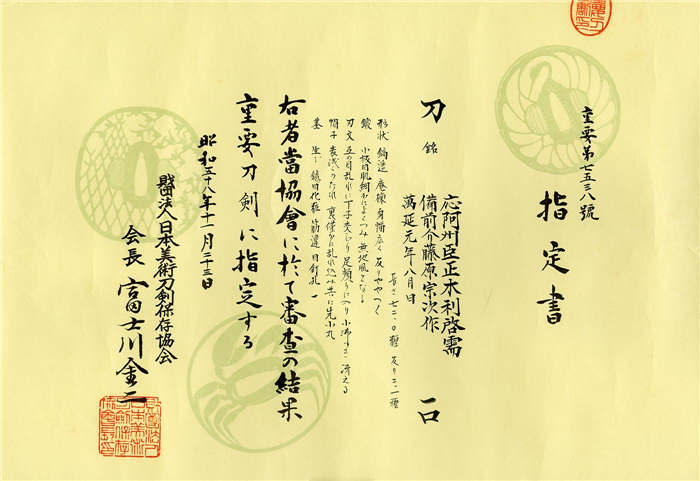 重要第七五三八號
指定書
刀 銘
応阿州臣正木利啓需
備前介藤原宗次作
萬延元年八月日
一口
長さ 七二・〇糎 反り 二・二糎
形状 鎬造 庵棟 身幅広く 反りやや
鍛 小板目肌細かによくつみ 無地風となる
刃文 互の目乱れに丁子交じり 足頻りに入り
帽子 表浅くのたれ 裏僅かに乱れ込み 共に先小丸
茎 生 鑢目化粧筋違 目釘孔一
右者當協會に於て審査の結果
重要刀剣に指定する
昭和五十八年十一月二十三日
財団法人日本美術刀剣保存協会
会長 富士川金二